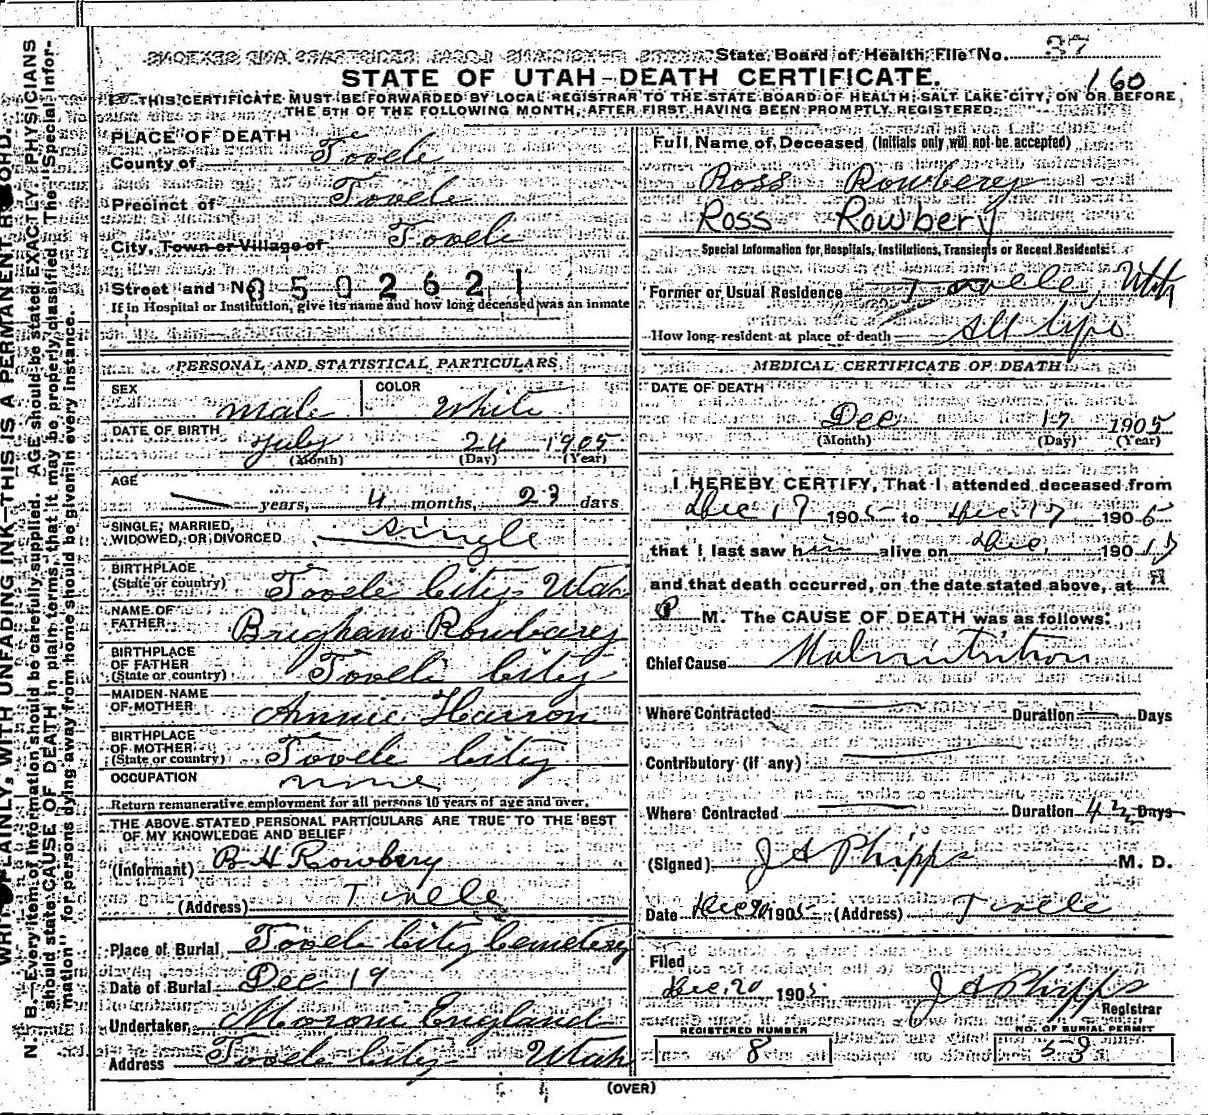 State Board of Health File No. 37
STATE OF UTAH—DEATH CERTIFICATE.
160
THIS CERTIFICATE MUST BE FORWARDED BY LOCAL REGISTRAR TO THE STATE BOARD OF HEALTH, SALT LAKE CITY, ON OR BEFORE
THE 5TH OF THE FOLLOWING MONTH, AFTER FIRST HAVING BEEN PROMPTLY REGISTERED.
PLACE OF DEATH
County of Tooele
Precinct of Tooele
City, Town or Village of Tooele
Street and No. 0502621
If in Hospital or Institution, give its name and how long deceased was an inmate
PERSONAL AND STATISTICAL PARTICULARS
SEX Male COLOR White
DATE OF BIRTH July 24 1905
(Month) (Day) (Year)
AGE — years, 4 months, 23 days
SINGLE, MARRIED,
WIDOWED, OR DIVORCED Single
BIRTHPLACE
(State or country) Tooele City Utah
NAME OF
FATHER Brigham Rowberry
BIRTHPLACE
OF FATHER
(State or country) Tooele City
MAIDEN NAME
OF MOTHER Annie
BIRTHPLACE
OF MOTHER
(State or country) Tooele City
OCCUPATION none
Return remunerative employment for all persons 10 years of age and over.
THE ABOVE STATED PERSONAL PARTICULARS ARE TRUE TO THE BEST
OF MY KNOWLEDGE AND BELIEF
(Informant) B H Rowbery
(Address) Tooele
Place of Burial Tooele City Cemetery
Date of Burial Dec 19
Undertaker Moroni England
Address Tooele City Utah
Full Name of Deceased (Initials only will not be accepted)
Ross Rowberry
Ross Rowbery
Special Information for Hospitals, Institutions, Transients or Recent Residents:
Former or Usual Residence Tooele, Utah
How long resident at place of death All life
MEDICAL CERTIFICATE OF DEATH
DATE OF DEATH
Dec 17 1905
(Month) (Day) (Year)
I HEREBY CERTIFY, That I attended deceased from
Dec 17 1905 to Dec 17 1905
that I last saw him alive on Dec. 190 17
and that death occurred, on the date stated above, at
P M. The CAUSE OF DEATH was as follows:
Chief Cause Malnutrition
Where Contracted — Duration — Days
Contributory (if any) —
Where Contracted — Duration 4½ Days
(Signed) J A Phipps M. D.
Date Dec 20 1905 (Address) Tooele
Filed
Dec. 20 1905 J A Phipps
Registrar
REGISTERED NUMBER
8
NO. OF BURIAL PERMIT
53
(OVER)
WRITE PLAINLY, WITH UNFADING INK—THIS IS A PERMANENT RECORD.
N. B.—Every item of information should be carefully supplied. AGE should be stated EXACTLY. PHYSICIANS
should state CAUSE OF DEATH in plain terms, that it may be properly classified. The "Special Infor-
mation" for persons dying away from home should be given in every instance.